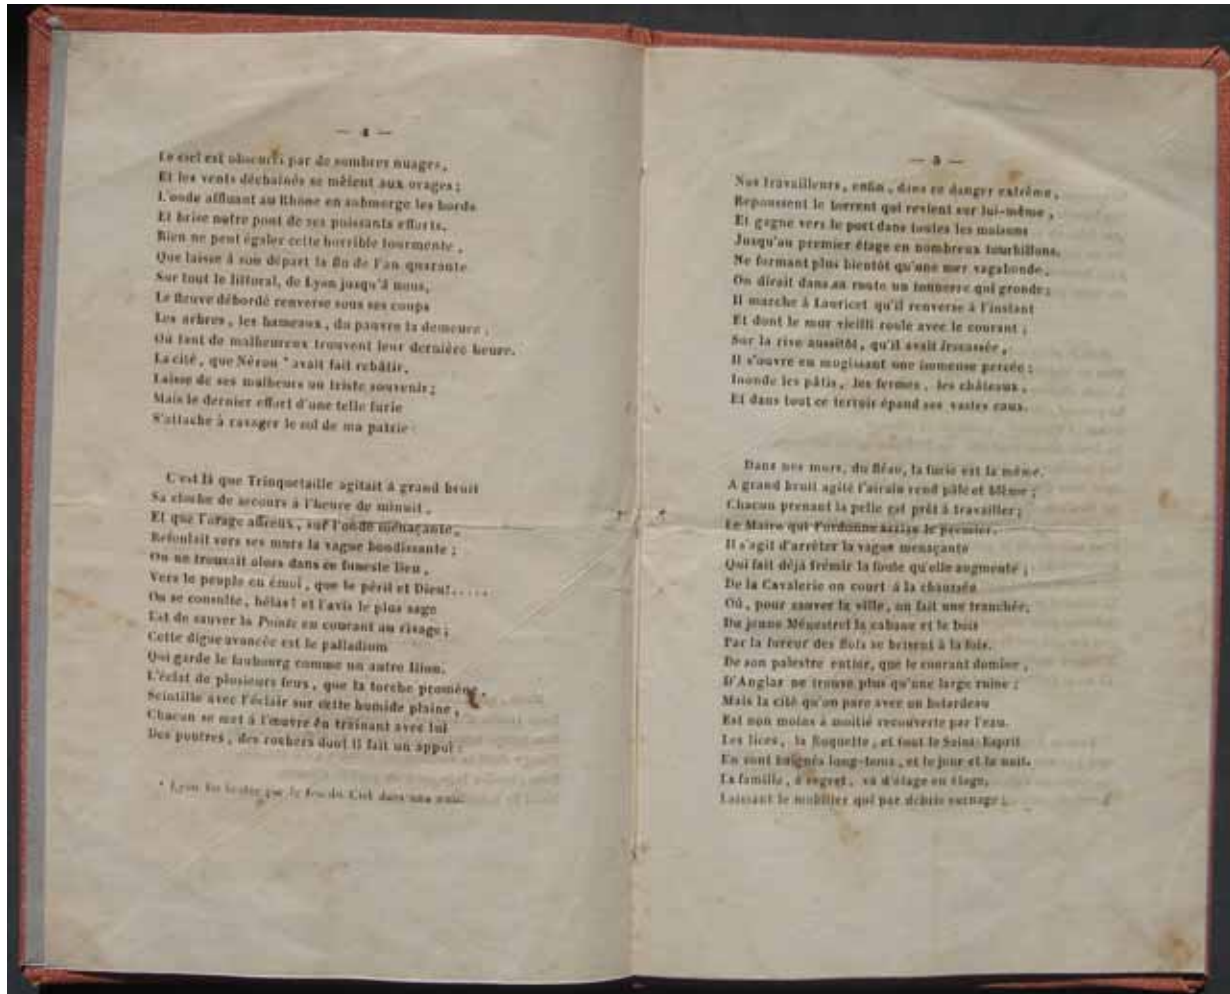 — 4 —
Le ciel est obscurci par de sombres nuages,
Et les vents déchaînés se mêlent aux orages;
L'onde affluant au Rhône en submerge les bords
Et brise notre pont de ses puissants efforts.
Rien ne peut égaler cette horrible tourmente,
Que laisse à son départ la fin de l'an quarante
Sur tout le littoral, de Lyon jusqu'à nous,
Le fleuve débordé renverse sous ses coups
Les arbres, les hameaux, du pauvre la demeure,
Où tant de malheureux trouvent leur dernière heure.
La cité, que Néron * avait fait rebâtir,
Laisse de ses malheurs un triste souvenir;
Mais le dernier effort d'une telle furie
S'attache à ravager le sol de ma patrie
C'est là que Trinquetaille agitait à grand bruit
Sa cloche de secours à l'heure de minuit,
Et que l'orage affreux, sur l'onde menaçante,
Refoulait vers ses murs la vague bondissante;
On ne trouvait alors dans ce funeste lieu,
Vers le peuple en émoi, que le péril et Dieu!.....
On se consulte, hélas! et l'avis le plus sage
Est de sauver la Pointe en courant au rivage;
Cette digue avancée est le palladium
Qui garde le faubourg comme un autre Ilion.
L'éclat de plusieurs feux, que la torche promène,
Scintille avec l'éclair sur cette humide plaine,
Chacun se met à l'œuvre en traînant avec lui
Des poutres, des rochers dont il fait un appui:
* Lyon fut brûlée par le feu du Ciel dans une nuit.
— 5 —
Nos travailleurs, enfin, dans ce danger extrême,
Repoussent le torrent qui revient sur lui-même,
Et gagne vers le port dans toutes les maisons
Jusqu'au premier étage en nombreux tourbillons.
Ne formant plus bientôt qu'une mer vagabonde,
On dirait dans sa route un tonnerre qui gronde;
Il marche à Lauricet qu'il renverse à l'instant
Et dont le mur vieilli roule avec le courant;
Sur la rive aussitôt, qu'il avait fracassée,
Il s'ouvre en mugissant une immense percée;
Inonde les pâtis, les fermes, les châteaux,
Et dans tout ce terroir épand ses vastes eaux.
Dans nos murs, du fléau, la furie est la même.
A grand bruit agité l'airain rend pâle et blême;
Chacun prenant la pelle est prêt à travailler;
Le Maire qui l'ordonne arrive le premier.
Il s'agit d'arrêter la vague menaçante
Qui fait déjà frémir la foule qu'elle augmente;
De la Cavalerie on court à la chaussée
Où, pour sauver la ville, on fait une tranchée.
Du jeune Ménestrel la cabane et le bois
Par la fureur des flots se brisent à la fois.
De son palestre entier, que le courant domine,
D'Anglas ne trouve plus qu'une large ruine;
Mais la cité qu'on pare avec un batardeau
Est non moins à moitié recouverte par l'eau.
Les lices, la Roquette, et tout le Saint-Esprit
En sont baignés long-tems, et le jour et la nuit.
La famille, à regret, va d'étage en étage,
Laissant le mobilier qui par débris surnage;